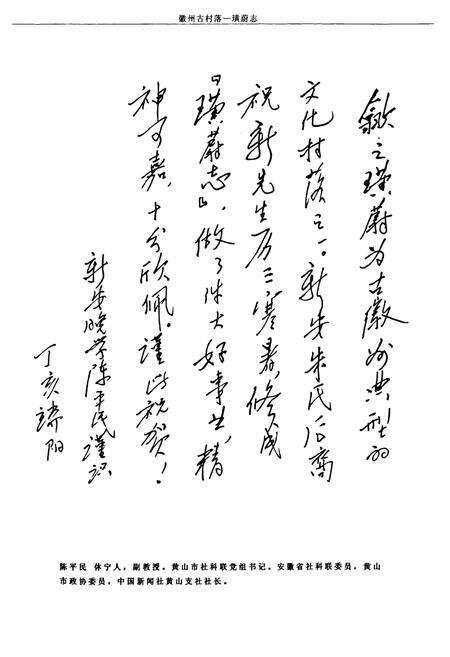 徽州古村落—璜蔚志
歙之璜蔚为古徽州典型的
文化村落之一。新安朱氏后裔
祝新先生历三寒暑,修成
《璜蔚志》,做了件大好事业,精
神可嘉,十分欣佩。谨此祝贺!
新安晚学陈平民谨识
丁亥端阳
陈平民 休宁人,副教授。黄山市社科联党组书记。安徽省社科联委员,黄山
市政协委员,中国新闻社黄山支社社长。